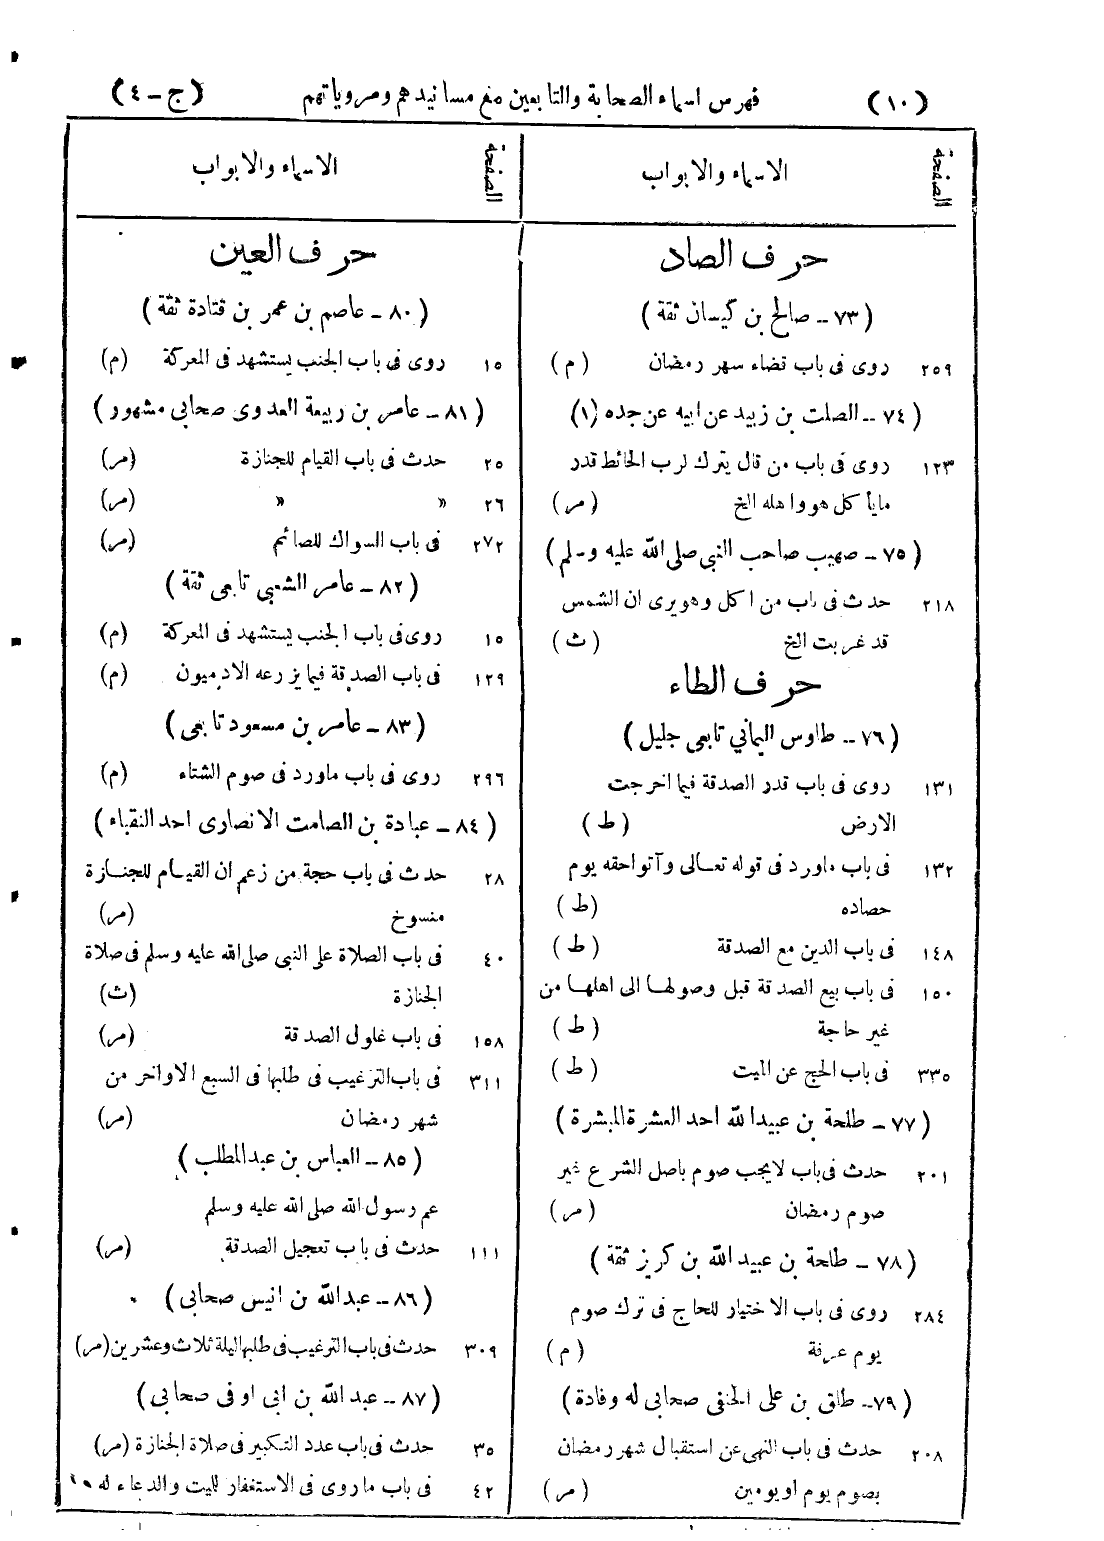 (١٠) فهرس اسماء الصحابة والتابعين مع مسانيدهم ومروياتهم (ج-٤)
الصفحة الاسماء والابواب
حرف الصاد
(٧٣ - صالح بن كيسان ثقة)
٢٥٩ روى فى باب قضاء سهر رمضان (م)
(٧٤ - الصلت بن زبيد عن ابيه عن جده (١)
١٢٣ روى فى باب من قال يترك لرب الحائط قدر
مايأكل هو واهله الخ (مر)
(٧٥ - صهيب صاحب النبى صلى الله عليه وسلم)
٢١٨ حدث فى باب من اكل وهو يرى ان الشمس
قد غربت الخ (ث)
حرف الطاء
(٧٦ - طاوس اليمانى تابعى جليل)
١٣١ روى فى باب قدر الصدقة فيما اخرجت
الارض (ط)
١٣٢ فى باب ماورد فى قوله تعالى وآتوا حقه يوم
حصاده (ط)
١٤٨ فى باب الدين مع الصدقة (ط)
١٥٠ فى باب بيع الصدقة قبل وصولها الى اهلها من
غير حاجة (ط)
٣٣٥ فى باب الحج عن الميت (ط)
(٧٧ - طلحة بن عبيدالله احد العشرة المبشرة)
٢٠١ حدث فى باب لايجب صوم باصل الشرع غير
صوم رمضان (مر)
(٧٨ - طلحة بن عبيد الله بن كريز ثقة)
٢٨٤ روى فى باب الاختيار للحاج فى ترك صوم
يوم عرفة (م)
(٧٩- طلق بن على الحنفى صحابى له وفادة)
٢٠٨ حدث فى باب النهى عن استقبال شهر رمضان
بصوم يوم او يومين (مر)
الصفحة الاسماء والابواب
حرف العين
(٨٠ - عاصم بن عمر بن قتادة ثقة)
١٥ روى فى باب الجنب يستشهد فى المعركة (م)
(٨١ - عامر بن ربيعة العدوى صحابى مشهور)
٢٥ حدث فى باب القيام للجنازة (مر)
٢٦ » » (مر)
٢٧٢ فى باب السواك للصائم (مر)
(٨٢ - عامر الشعبى تابعى ثقة)
١٥ روى فى باب الجنب يستشهد فى المعركة (م)
١٢٩ فى باب الصدقة فيما يزرعه الادميون (م)
(٨٣ - عامر بن مسعود تابعى)
٢٩٦ روى فى باب ماورد فى صوم الشتاء (م)
(٨٤ - عبادة بن الصامت الانصارى احد النقباء)
٢٨ حدث فى باب حجة من زعم ان القيام للجنازة
منسوخ (مر)
٤٠ فى باب الصلاة على النبى صلى الله عليه وسلم فى صلاة
الجنازة (ث)
١٥٨ فى باب غلول الصدقة (مر)
٣١١ فى باب الترغيب فى طلبها فى السبع الاواخر من
شهر رمضان (مر)
(٨٥ - العباس بن عبدالمطلب)
عم رسول الله صلى الله عليه وسلم
١١١ حدث فى باب تعجيل الصدقة (مر)
(٨٦ - عبدالله بن انيس صحابى)
٣٠٩ حدث فى باب الترغيب فى طلبها ليلة ثلاث وعشرين (مر)
(٨٧ - عبد الله بن ابى اوفى صحابى)
٣٥ حدث فى باب عدد التكبير فى صلاة الجنازة (مر)
٤٢ فى باب ماروى فى الاستغفار للميت والدعاء له